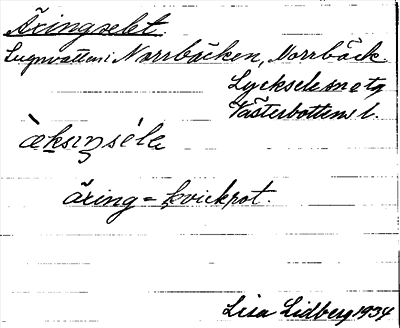 Äxingselet
Lugnvatten i Norrbäcken, Norrbäck
Lycksele snetg
Västerbottens l.
ä̀ksiŋséle
äxing = kvickrot.
Lisa Lidberg 1934